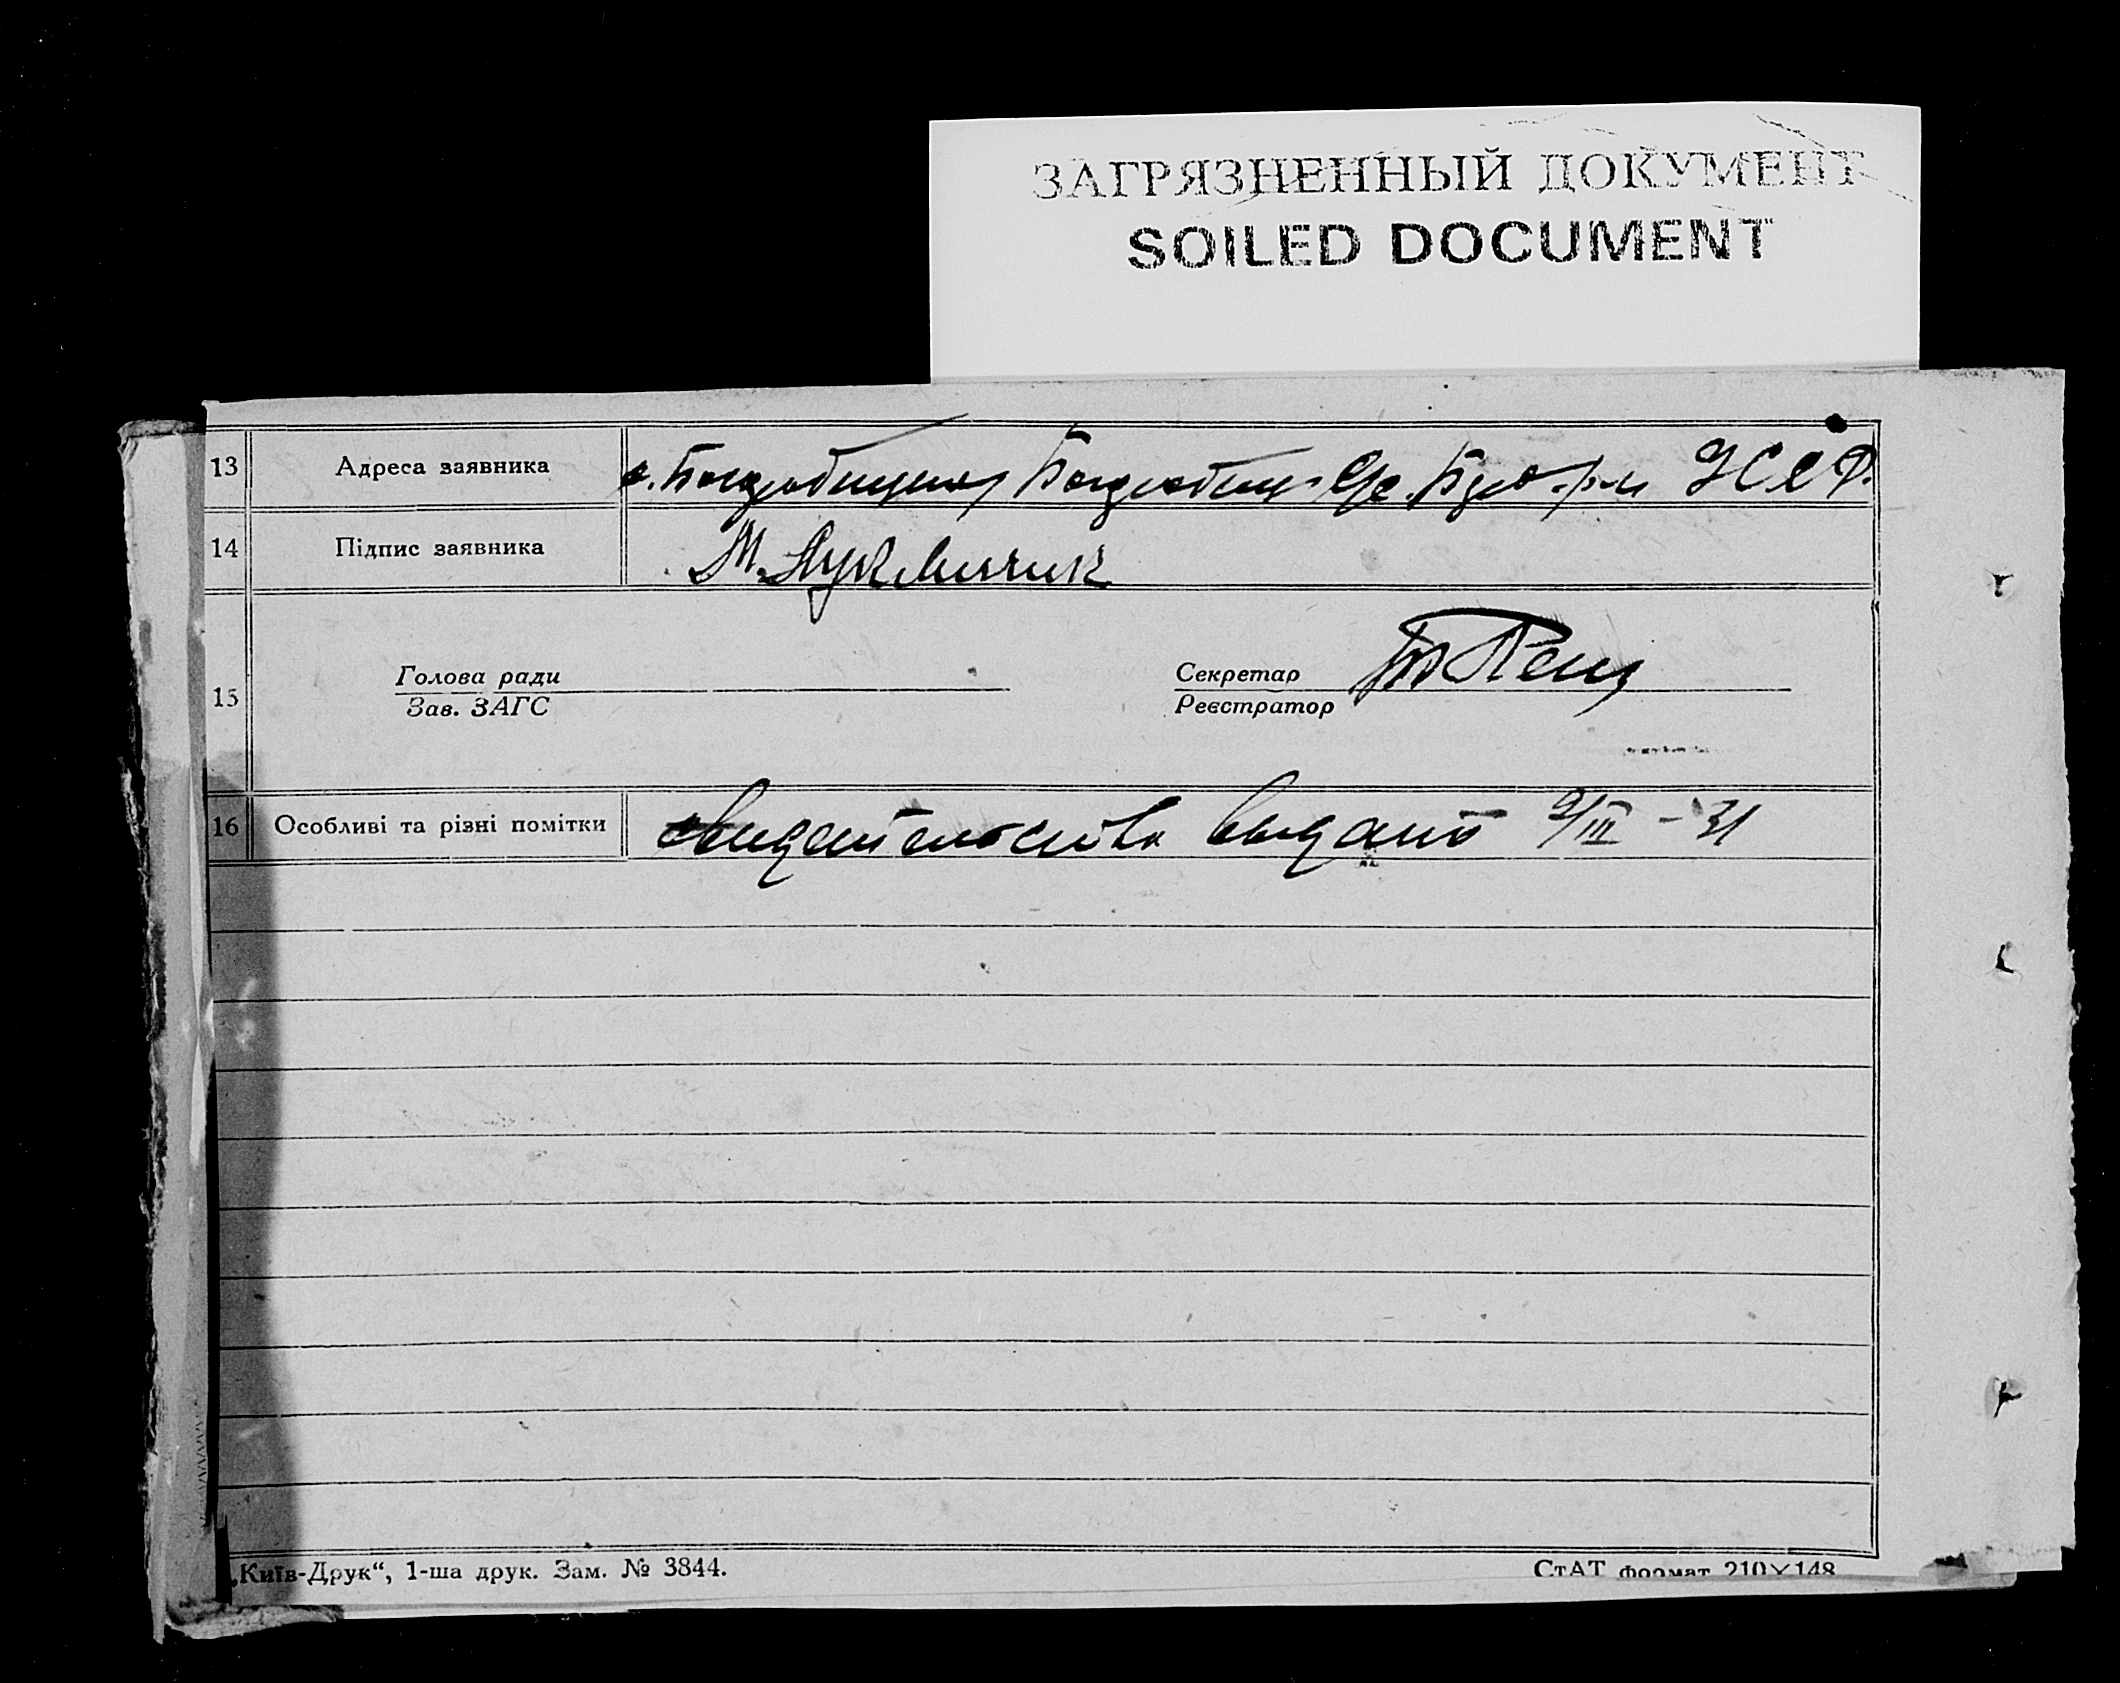 ЗАГРЯЗНЕННЫЙ ДОКУМЕНТ
SOILED DOCUMENT
13 Адреса заявника УССР.
14 Підпис заявника М.
Голова ради Секретар
15
Зав. ЗАГС Реєстратор
16 Особливі та різні помітки свидетельства выдано 9/III - 31
„Київ-Друк“, 1-ша друк. Зам. № 3844. СтАТ формат 210×148